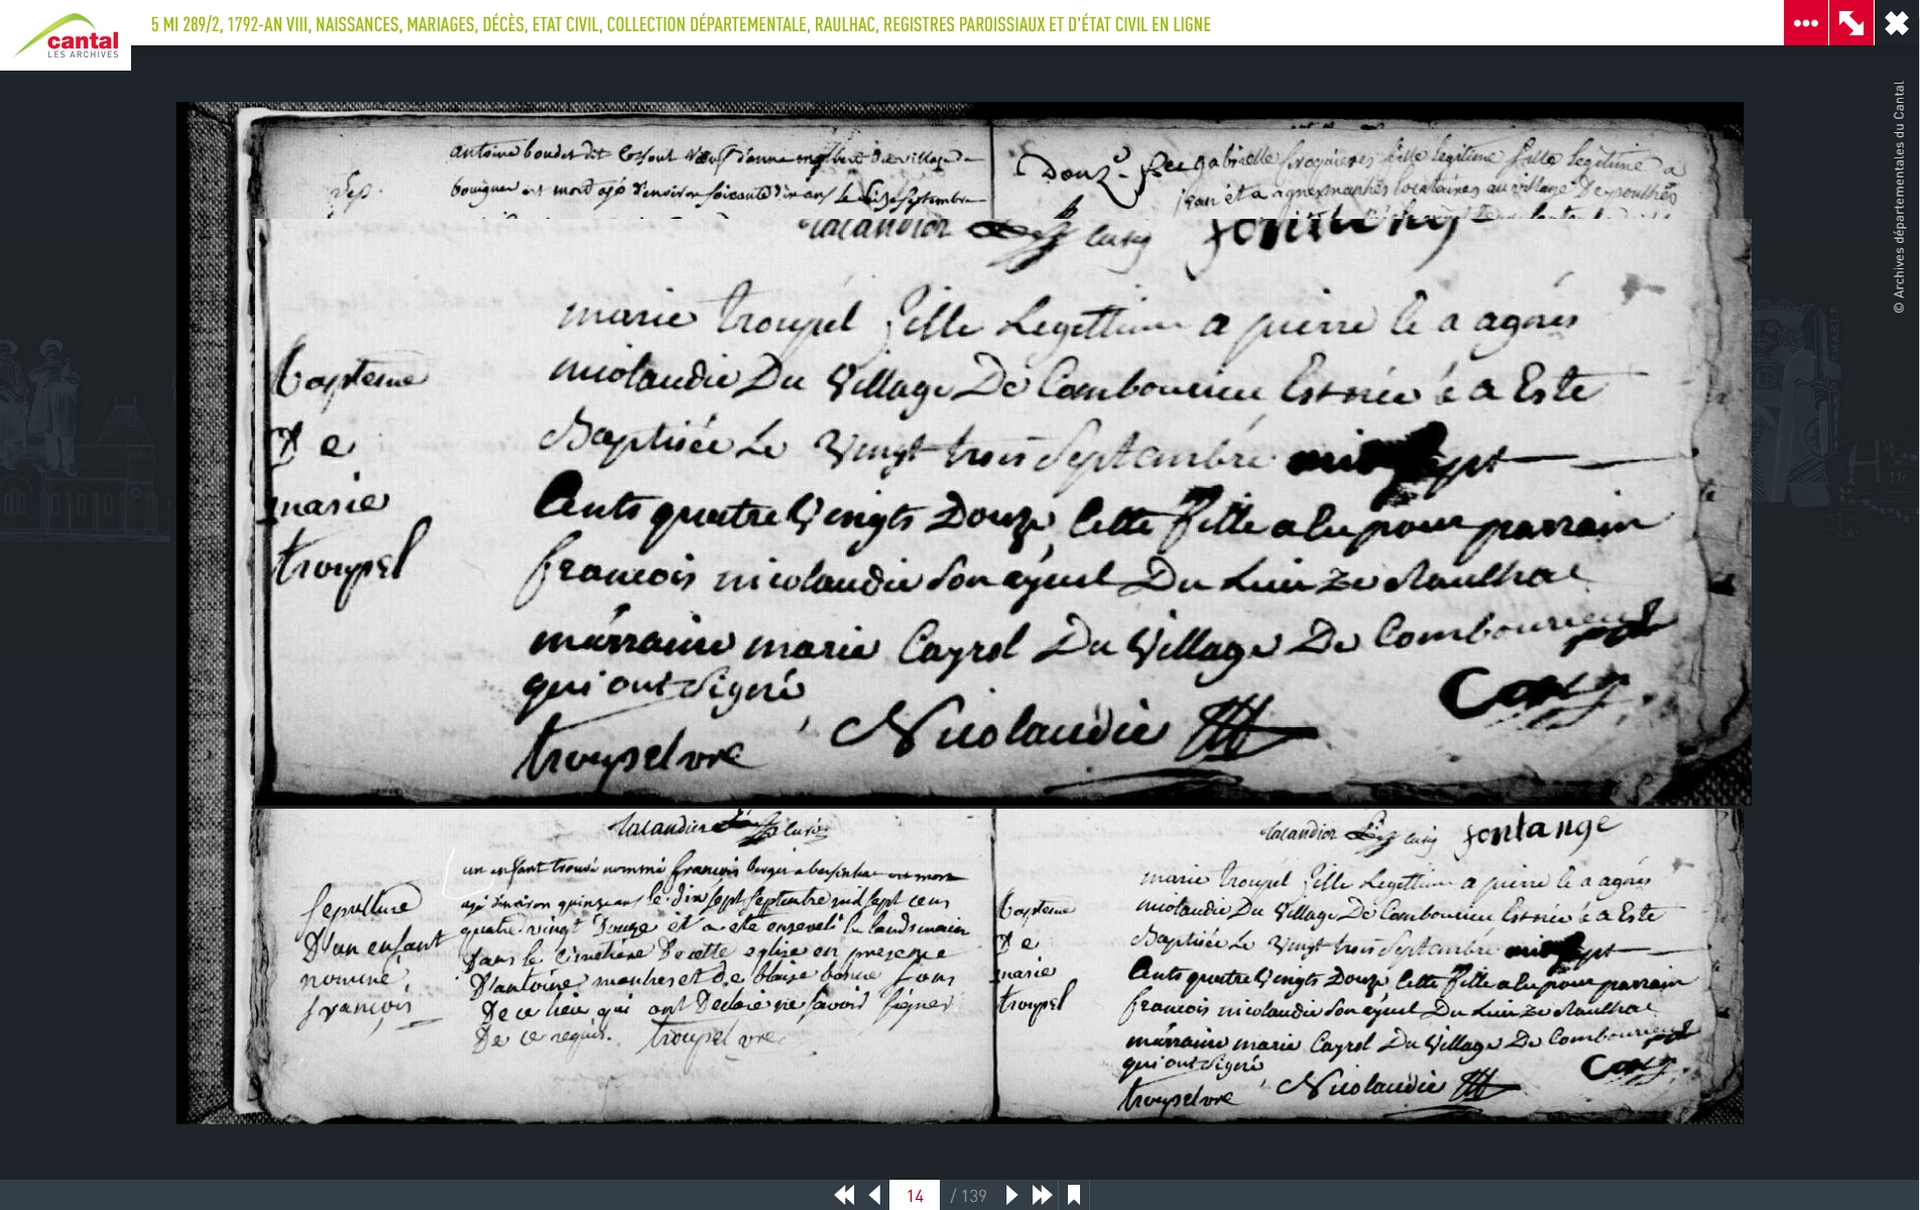 cantal
LES ARCHIVES
5 MI 289/2, 1792-AN VIII, NAISSANCES, MARIAGES, DÉCÈS, ETAT CIVIL, COLLECTION DÉPARTEMENTALE, RAULHAC, REGISTRES PAROISSIAUX ET D'ÉTAT CIVIL EN LIGNE
© Archives départementales du Cantal
antoine boudet dit
bouigues est mort agé d'environ soixante dix ans le septembre
Sep.
gabrielle fille legitime fille legitime a
jean et a agnes locataires au village De
lacandior curé fontange
marie troupel fille Legettime a pierre le a agnés
niolaudie Du Village De Combourieu Est née é a Este
Baptisée Le Vingt trois Septembre mil sept
Cents quatre Vingts Douze, Cette fille a lu pour parrain
francois nicolaudie son ayeul Du Lieu Ze Raulhac
marraine marie Cayrol Du Village De Combourieux
qui ont Signé
troupel vre Nicolaudie
bapteme
De
marie
troupel
lacandior curé
un enfant trouvé nommé françois
agé d'environ quinze ans le dix sept septembre mil sept cens
quatre vingt Douze et a eté enseveli le landemain
Dans le cimetière De cette eglise en presence
D'antoine et de blaise
De ce lieu qui ont Declaré ne savoir signer
De ce requis. troupel vre
sepulture
D'un enfant
nommé
françois
lacandior curé fontange
marie troupel fille Legettime a pierre le a agnés
niolaudie Du Village De Combourieu Est née é a Este
Baptisée Le Vingt trois Septembre mil sept
Cents quatre Vingts Douze, Cette fille a lu pour parrain
francois nicolaudie son ayeul Du Lieu Ze Raulhac
marraine marie Cayrol Du Village De Combourieux
qui ont Signé
troupel vre Nicolaudie
bapteme
De
marie
troupel
14 / 139